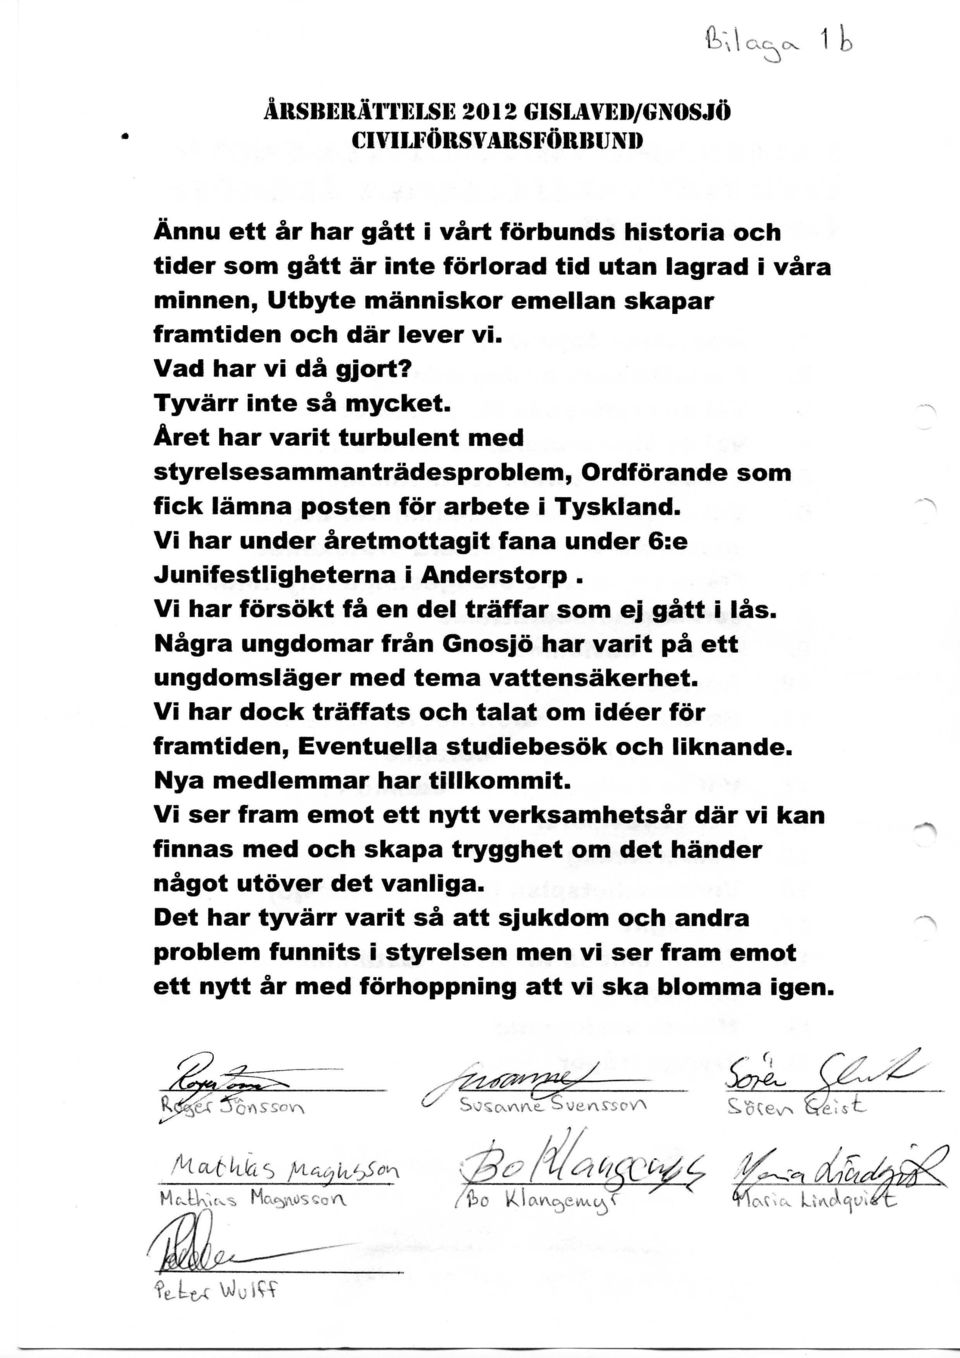 Bilaga 1b
ÅRSBERÄTTELSE 2012 GISLAVED/GNOSJÖ
CIVILFÖRSVARSFÖRBUND
Ännu ett år har gått i vårt förbunds historia och
tider som gått är inte förlorad tid utan lagrad i våra
minnen, Utbyte människor emellan skapar
framtiden och där lever vi.
Vad har vi då gjort?
Tyvärr inte så mycket.
Året har varit turbulent med
styrelsesammanträdesproblem, Ordförande som
fick lämna posten för arbete i Tyskland.
Vi har under åretmottagit fana under 6:e
Junifestligheterna i Anderstorp .
Vi har försökt få en del träffar som ej gått i lås.
Några ungdomar från Gnosjö har varit på ett
ungdomsläger med tema vattensäkerhet.
Vi har dock träffats och talat om idéer för
framtiden, Eventuella studiebesök och liknande.
Nya medlemmar har tillkommit.
Vi ser fram emot ett nytt verksamhetsår där vi kan
finnas med och skapa trygghet om det händer
något utöver det vanliga.
Det har tyvärr varit så att sjukdom och andra
problem funnits i styrelsen men vi ser fram emot
ett nytt år med förhoppning att vi ska blomma igen.
Sören Geist
Roger Jönsson Susanne Svensson Sören Geist
Mathias Magnusson Bo Klangemyr Maria Lindqvist
Mathias Magnusson Bo Klangemyr Maria Lindqvist
Peter Wulff